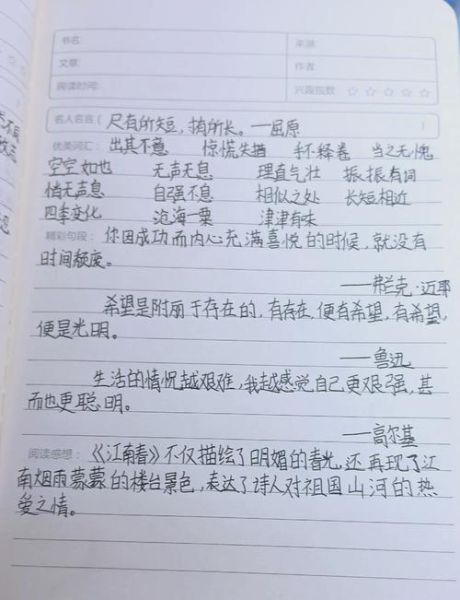 书名: 来源:
文章: 作者:
阅读时间: 兴趣指数 ☆ ☆ ☆ ☆ ☆
名人名言( 尺有所短,
所长。——屈原 )
优美词汇: 出其不意 惊慌失措 手不释卷 当之无愧
空空如也 无声无息 理直气壮 振振有词
悄无声息 自强不息 相似之处 长短相近
四季变化 沧海一粟 津津有味
精彩句段: 你因成功而内心充满喜悦的时候,就没有
时间颓废。
——弗兰克·迈耶
希望是附丽于存在的,有存在,便有希望,有希望,
便是光明。
——鲁迅
生活的情况越艰难,我越感觉自己更坚强,甚
而也更聪明。
——高尔基
阅读感想: 《江南春》不仅描绘了明媚的春光,还再现了江
南烟雨蒙蒙的楼台景色,表达了诗人对祖国山河的热
爱之情。